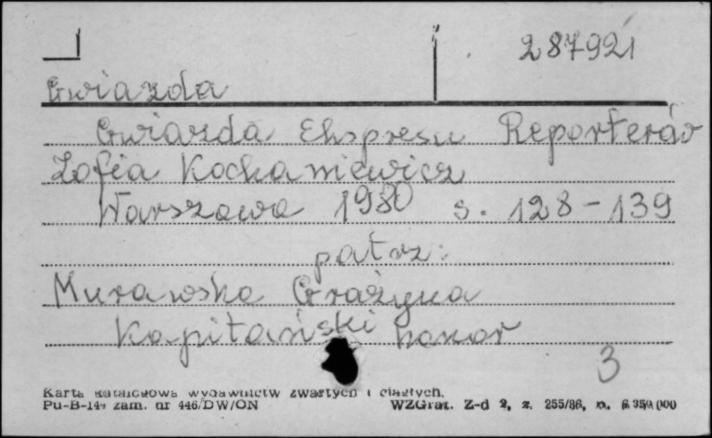 287921
Gwiazda
Gwiazda Ekspresu Reporterów
Zofia Kochaniewicz
Warszawa 1980 s. 128-139
patrz:
Murawska Grażyna
Kapitański honor
3
Karta katalogowa wydawnictw zwartych i ciągłych.
Pu-B-144 zam. nr 446/DW/ON WZGraf. Z-d 2, z. 255/86, n.